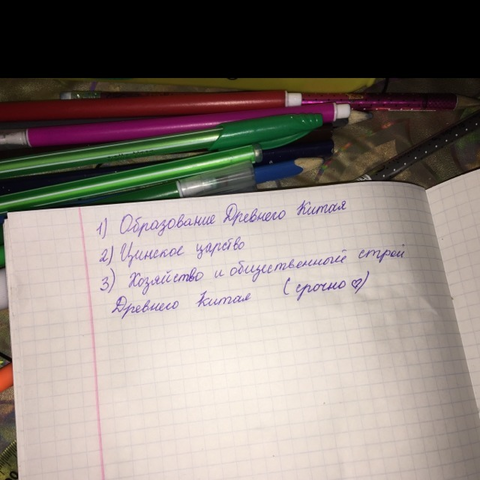 1) Образование Древнего Китая
2) Цинское царство
3) Хозяйство и общественный строй
Древнего Китая (срочно ♡)